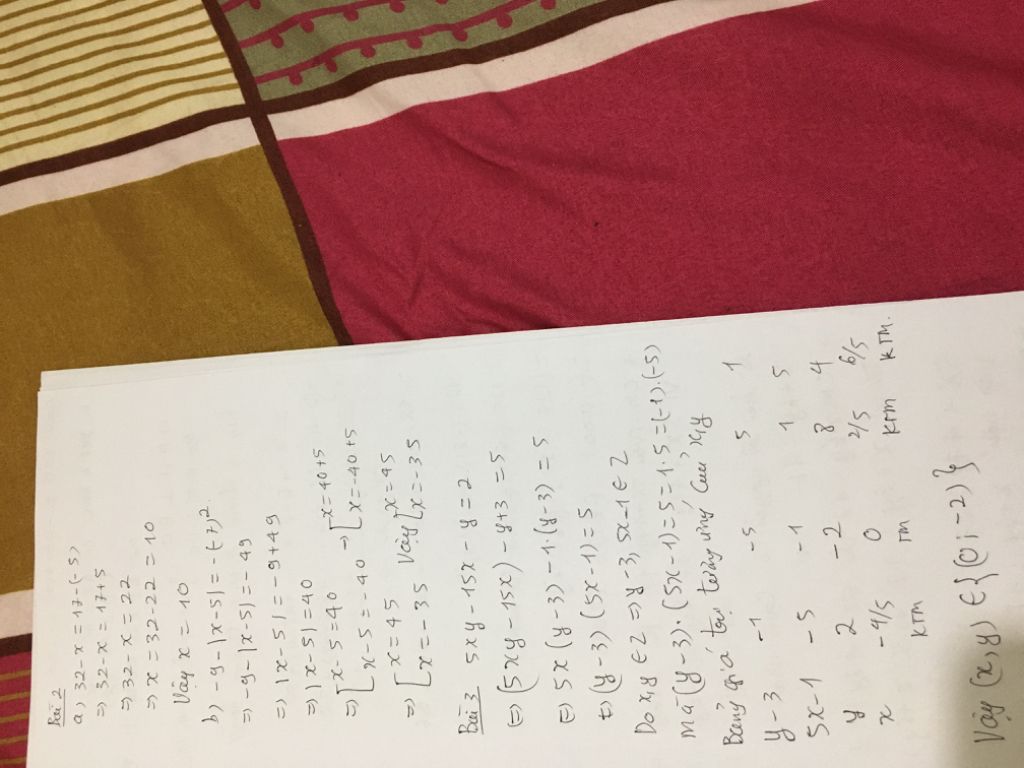 Bài 2
a) 32-x = 17-(-5)
=> 32-x = 17+5
=> 32-x = 22
=> x = 32-22 = 10
Vậy x = 10
b) -9-|x-5| = -(-7)²
=> -9-|x-5| = -49
=> |x-5| = -9+49
=> |x-5| = 40
=> [x-5=40 → [x=40+5
[x-5=-40 [x=-40+5
=> [x=45 Vậy [x=45
[x=-35 [x=-35
Bài 3 5xy-15x-y=2
(=) (5xy-15x)-y+3=5
(=) 5x(y-3)-1.(y-3)=5
(=) (y-3)(5x-1)=5
Do x,y ∈ Z => y-3, 5x-1 ∈ Z
mà (y-3).(5x-1)=5=1.5=(-1).(-5)
Bảng giá trị tương ứng của x,y
y-3 -1 -5 5 1
5x-1 -5 -1 1 5
y 2 -2 8 4
x -4/5 0 2/5 6/5
KTM TM KTM KTM.
Vậy (x,y) ∈ {(0;-2)}